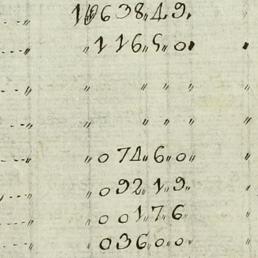 〃 1163849.
〃 〃 116〃5〃0〃
〃 〃 〃 〃 〃
〃 〃 〃 〃 〃
〃 〃0746〃0〃
〃 0921〃9〃
〃 00176
〃 036〃0〃0〃